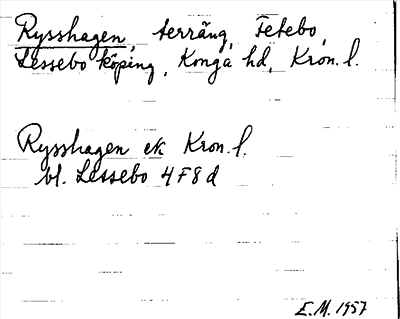 Rysshagen, terräng, Fetebo,
Lessebo köping, Konga hd, Kron. l.
Rysshagen ek Kron. l.
bl. Lessebo 4 F 8 d
E.M. 1957